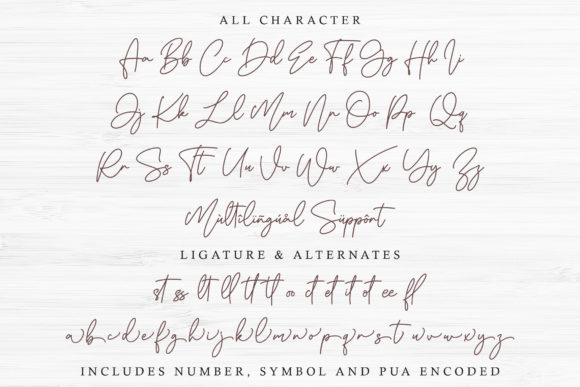 ALL CHARACTER
Aa Bb Cc Dd Ee Ff Gg Hh Ii
Jj Kk Ll Mm Nn Oo Pp Qq
Rr Ss Tt Uu Vv Ww Xx Yy Zz
Mùltîlïñgúål Süppõrt
LIGATURE & ALTERNATES
st ss lt ll tt tl oo ct et it ot ee fl
a b c d e f g h i j k l m n o p q r s t u v w x y z
INCLUDES NUMBER, SYMBOL AND PUA ENCODED